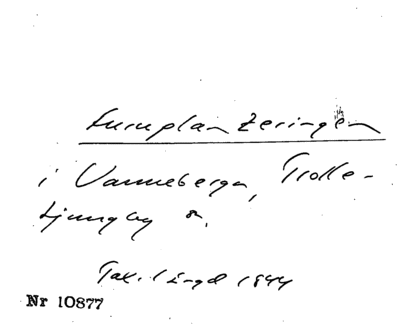 Furuplanteringen
i Vanneberga, Trolle-
Ljungby s.
Tax. längd 1944
Nr 10877